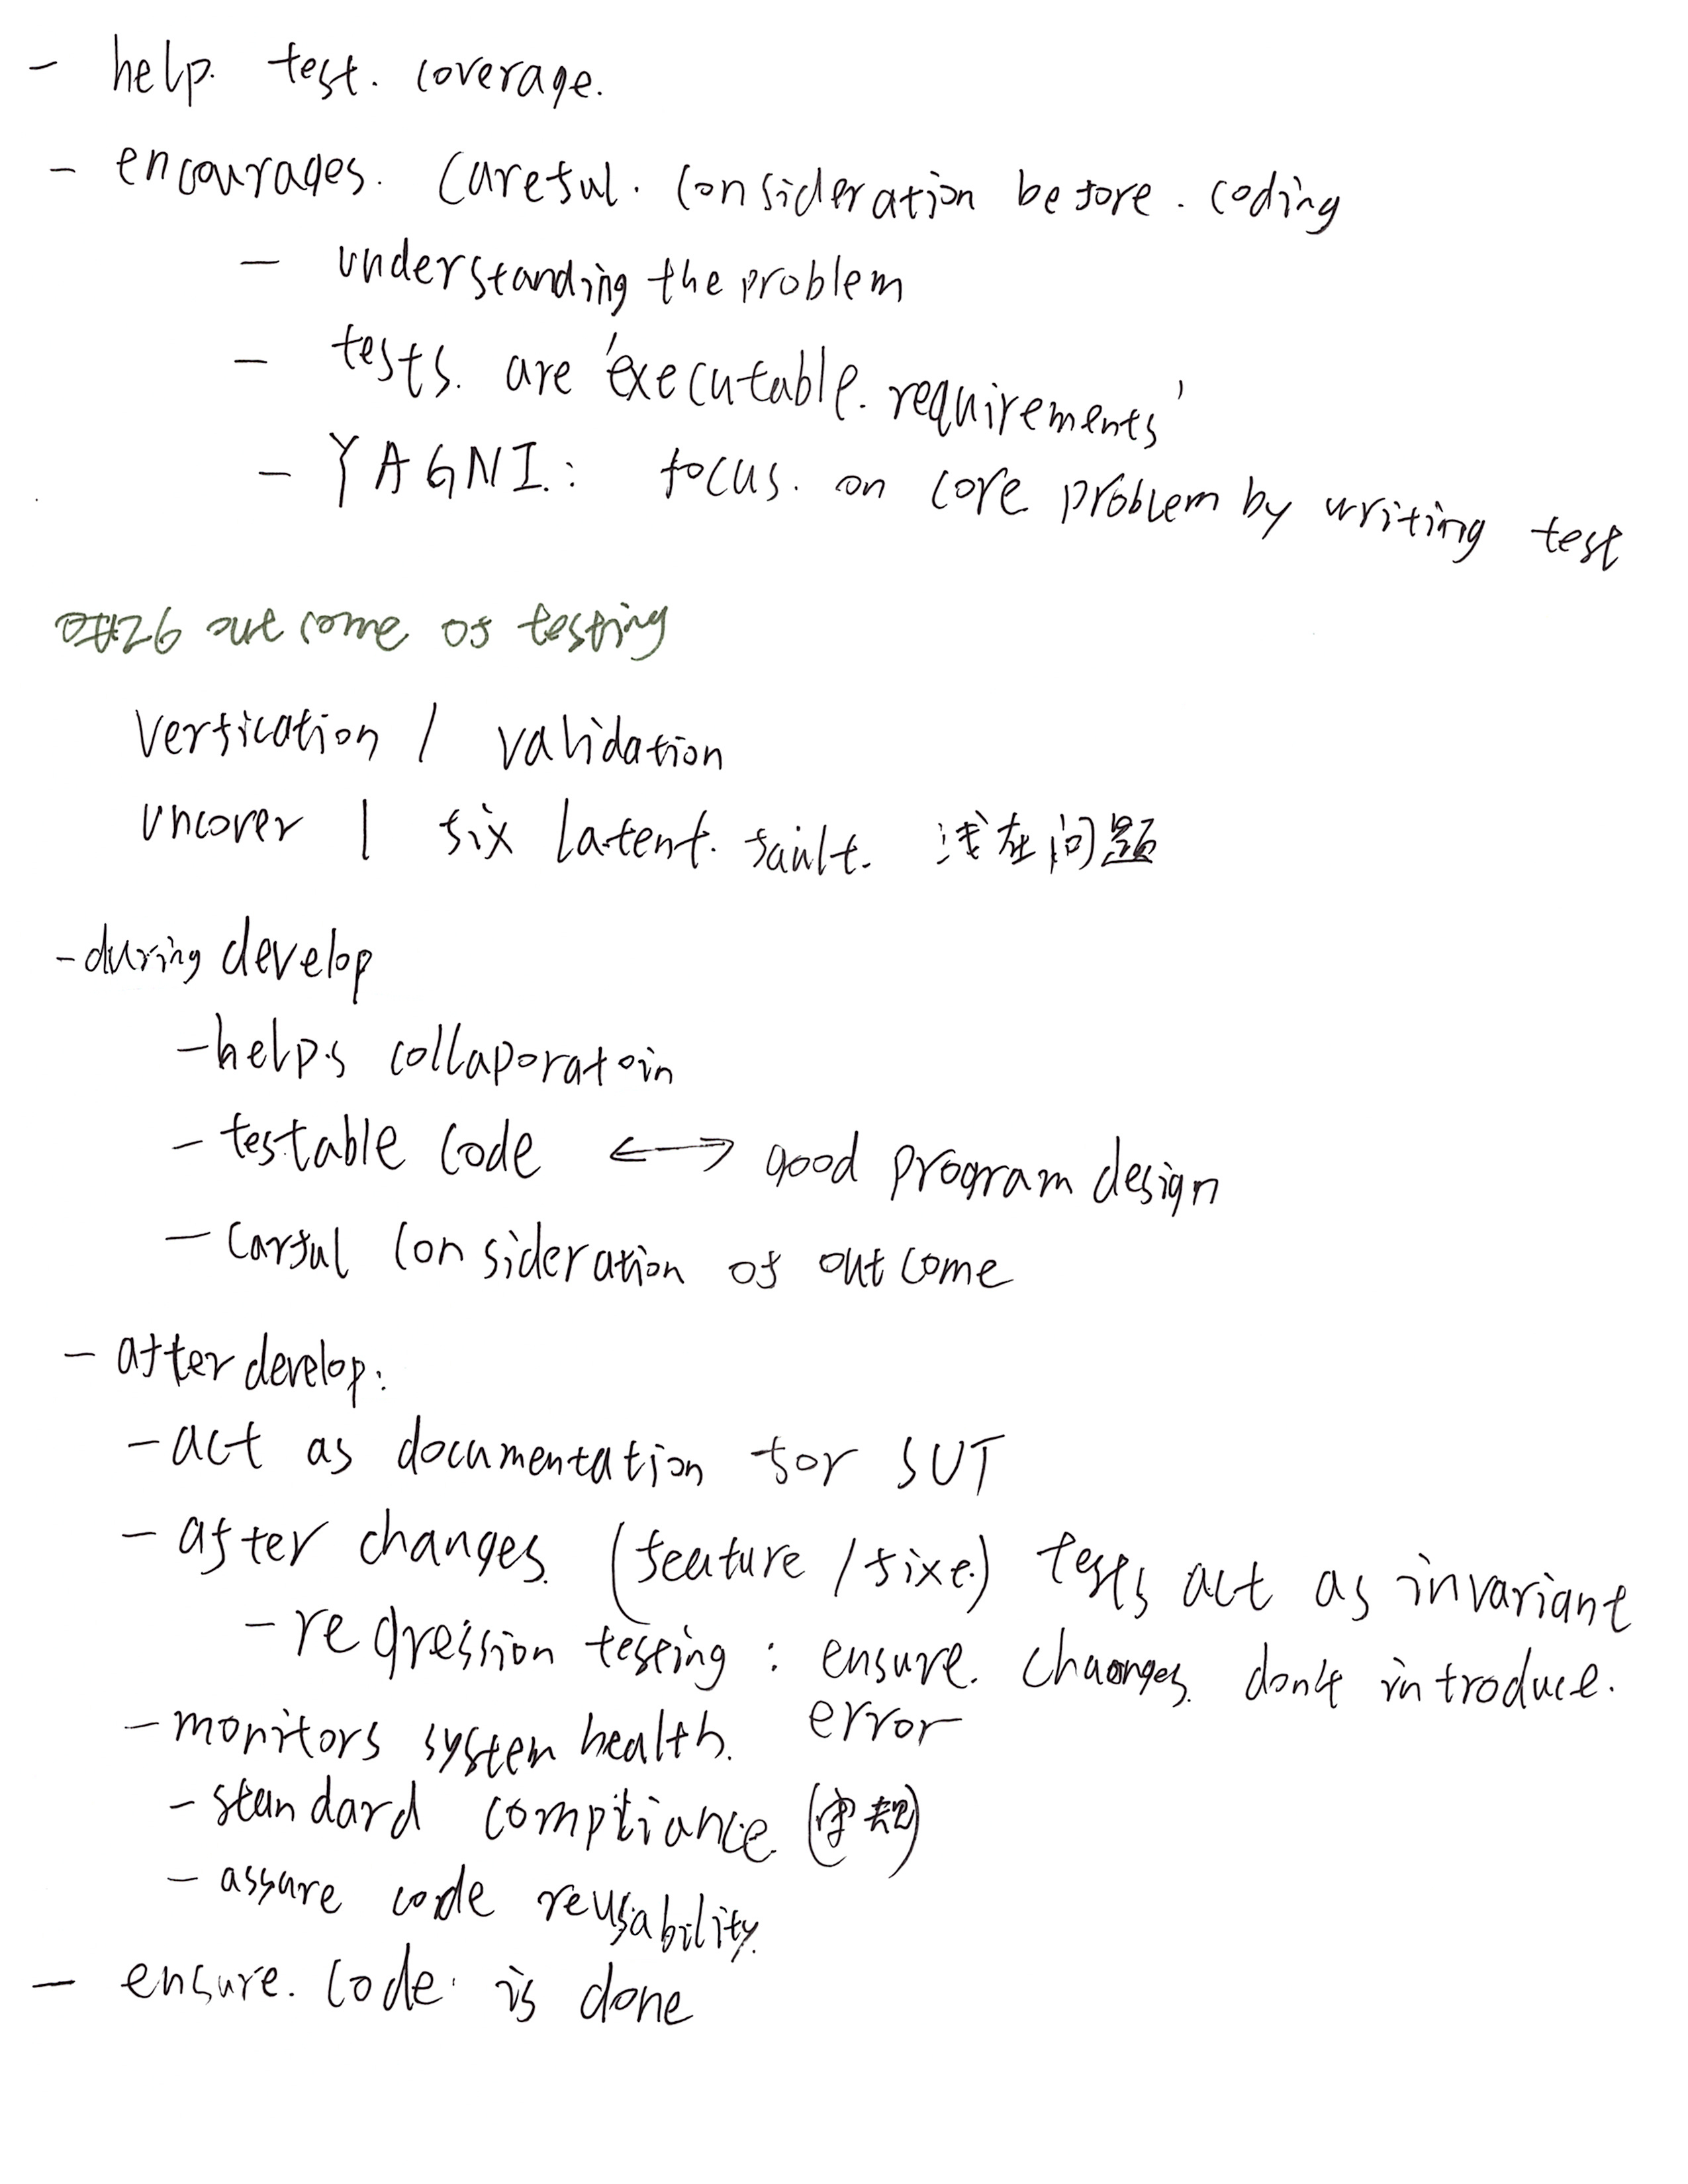 - help test coverage.
- encourages. Careful. Consideration before. coding
- understanding the problem
- tests. are 'executable. requirements'
- YAGNI.: focus. on core problem by writing test
#26 outcome of testing
Verfication / validation
Uncover / fix latent. fault. 浅在问题
- during develop
- helps collaporatoin
- testable Code ⟷ good program design
- Carful Consideration of outcome
- after develop:
- act as documentation for SUT
- after changes (feature / fixe) tests act as invariant
- regression testing : ensure. changes don't introduce.
error
- monitors system health.
- standard compliance (守规)
- assure code reusability
- ensure. Code. is done